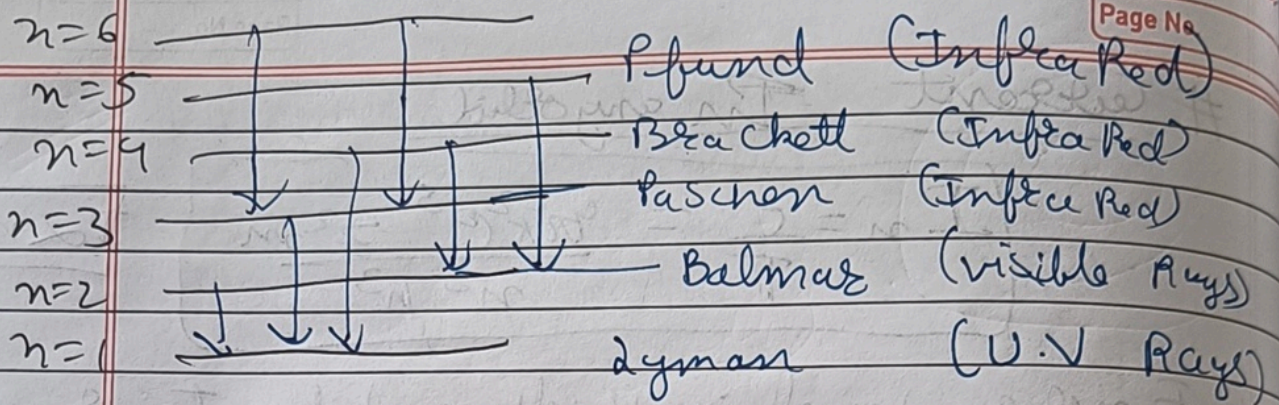 Page No
n=6
n=5 Pfund (Infra Red)
n=4 Brackett (Infra Red)
n=3 Paschen (Infra Red)
n=2 Balmar (visible Rays)
n=1 Lyman (U.V Rays)